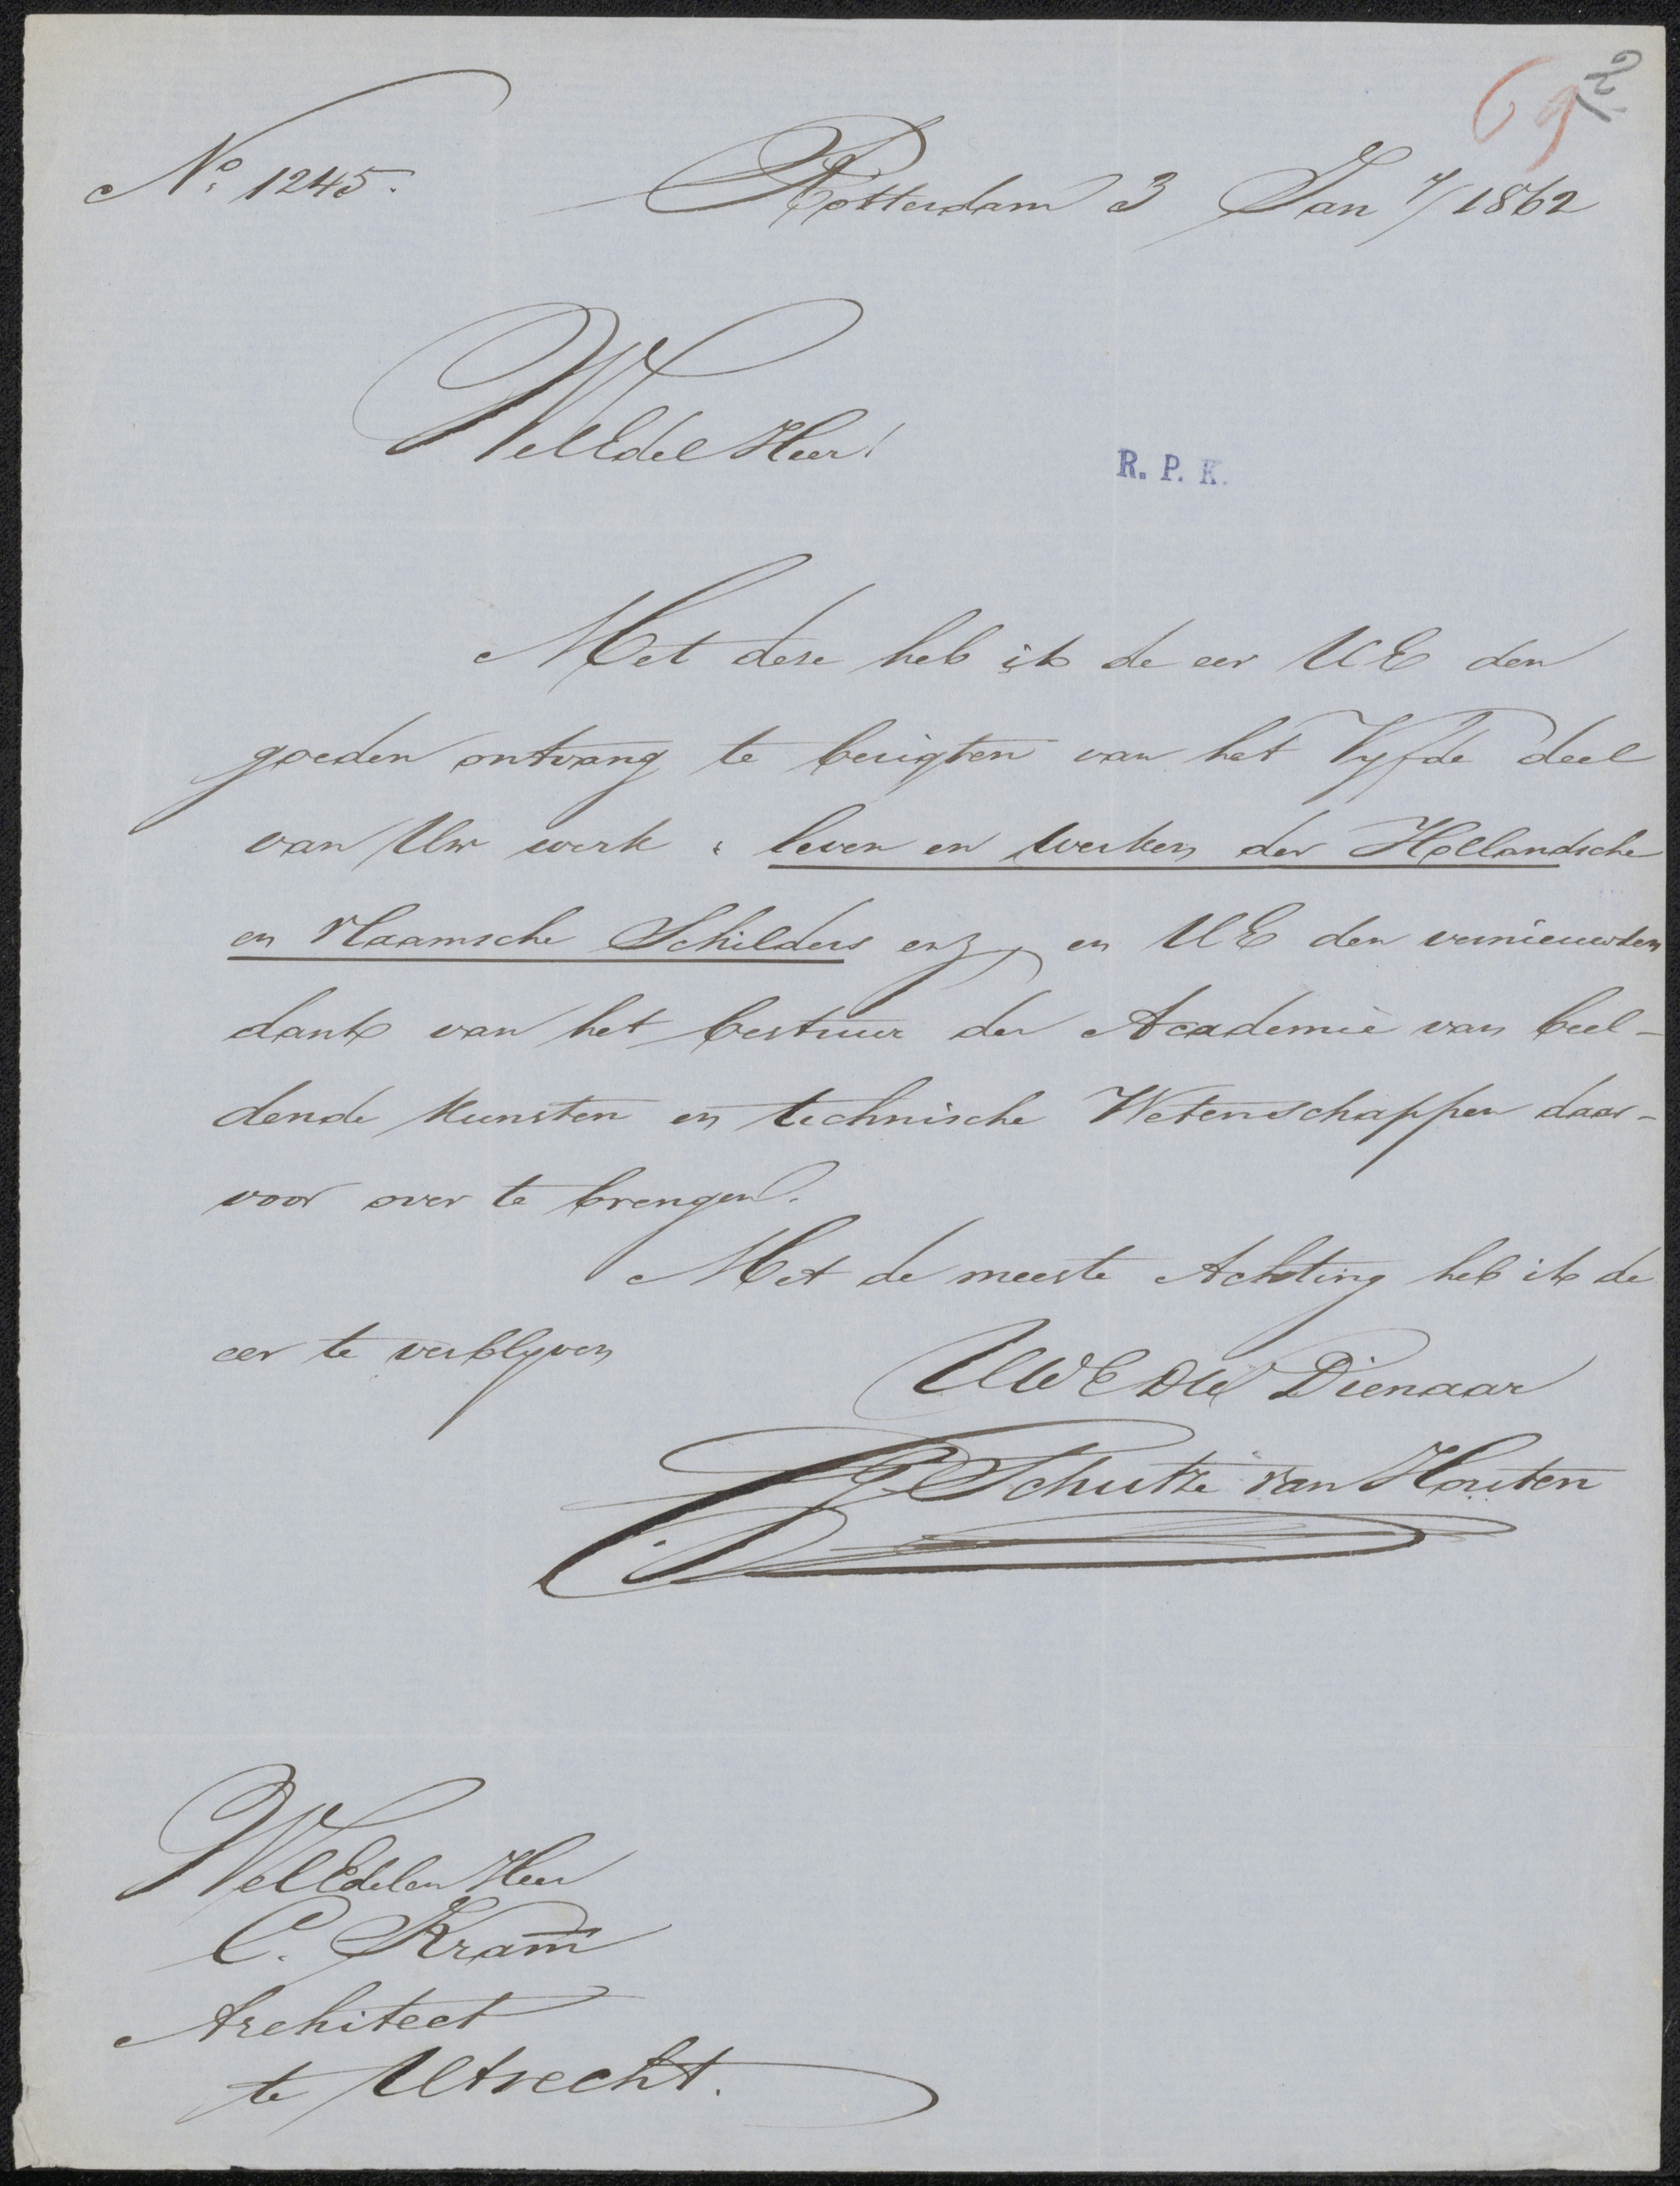 69
N.o 1245.
Rotterdam 3 Jan y/ 1862
WelEdel Heer!
R. P. K.
Met deze heb ik de eer UE den
goeden ontvang te berigten van het Vyfde deel
van Uw werk: leven en werken der Hollandsche
en Vlaamsche Schilders enz, en UE den vernieuwden
dank van het bestuur der Academie van beel-
dende Kunsten en technische Wetenschappen daar-
voor over te brengen.
Met de meeste Achting heb ik de
eer te verblyven
UWEDW Dienaar
Schutze van Houten
WelEdelen Heer
C. Kram̅
Architect
te Utrecht.